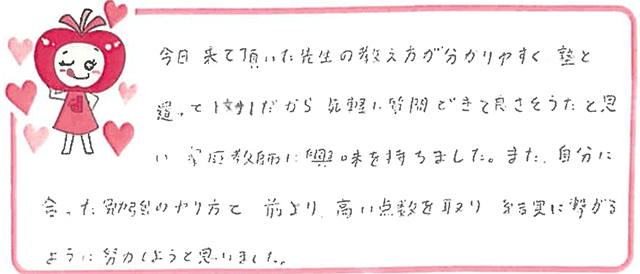 今日来て頂いた先生の教え方が分かりやすく 塾と
違って1対1だから 気軽に質問できて良さそうだと思
い 家庭教師に興味を持ちました。また、自分に
合った勉強のやり方で 前より、高い点数を取り 結果に繋がる
ように努力しようと思いました。
d